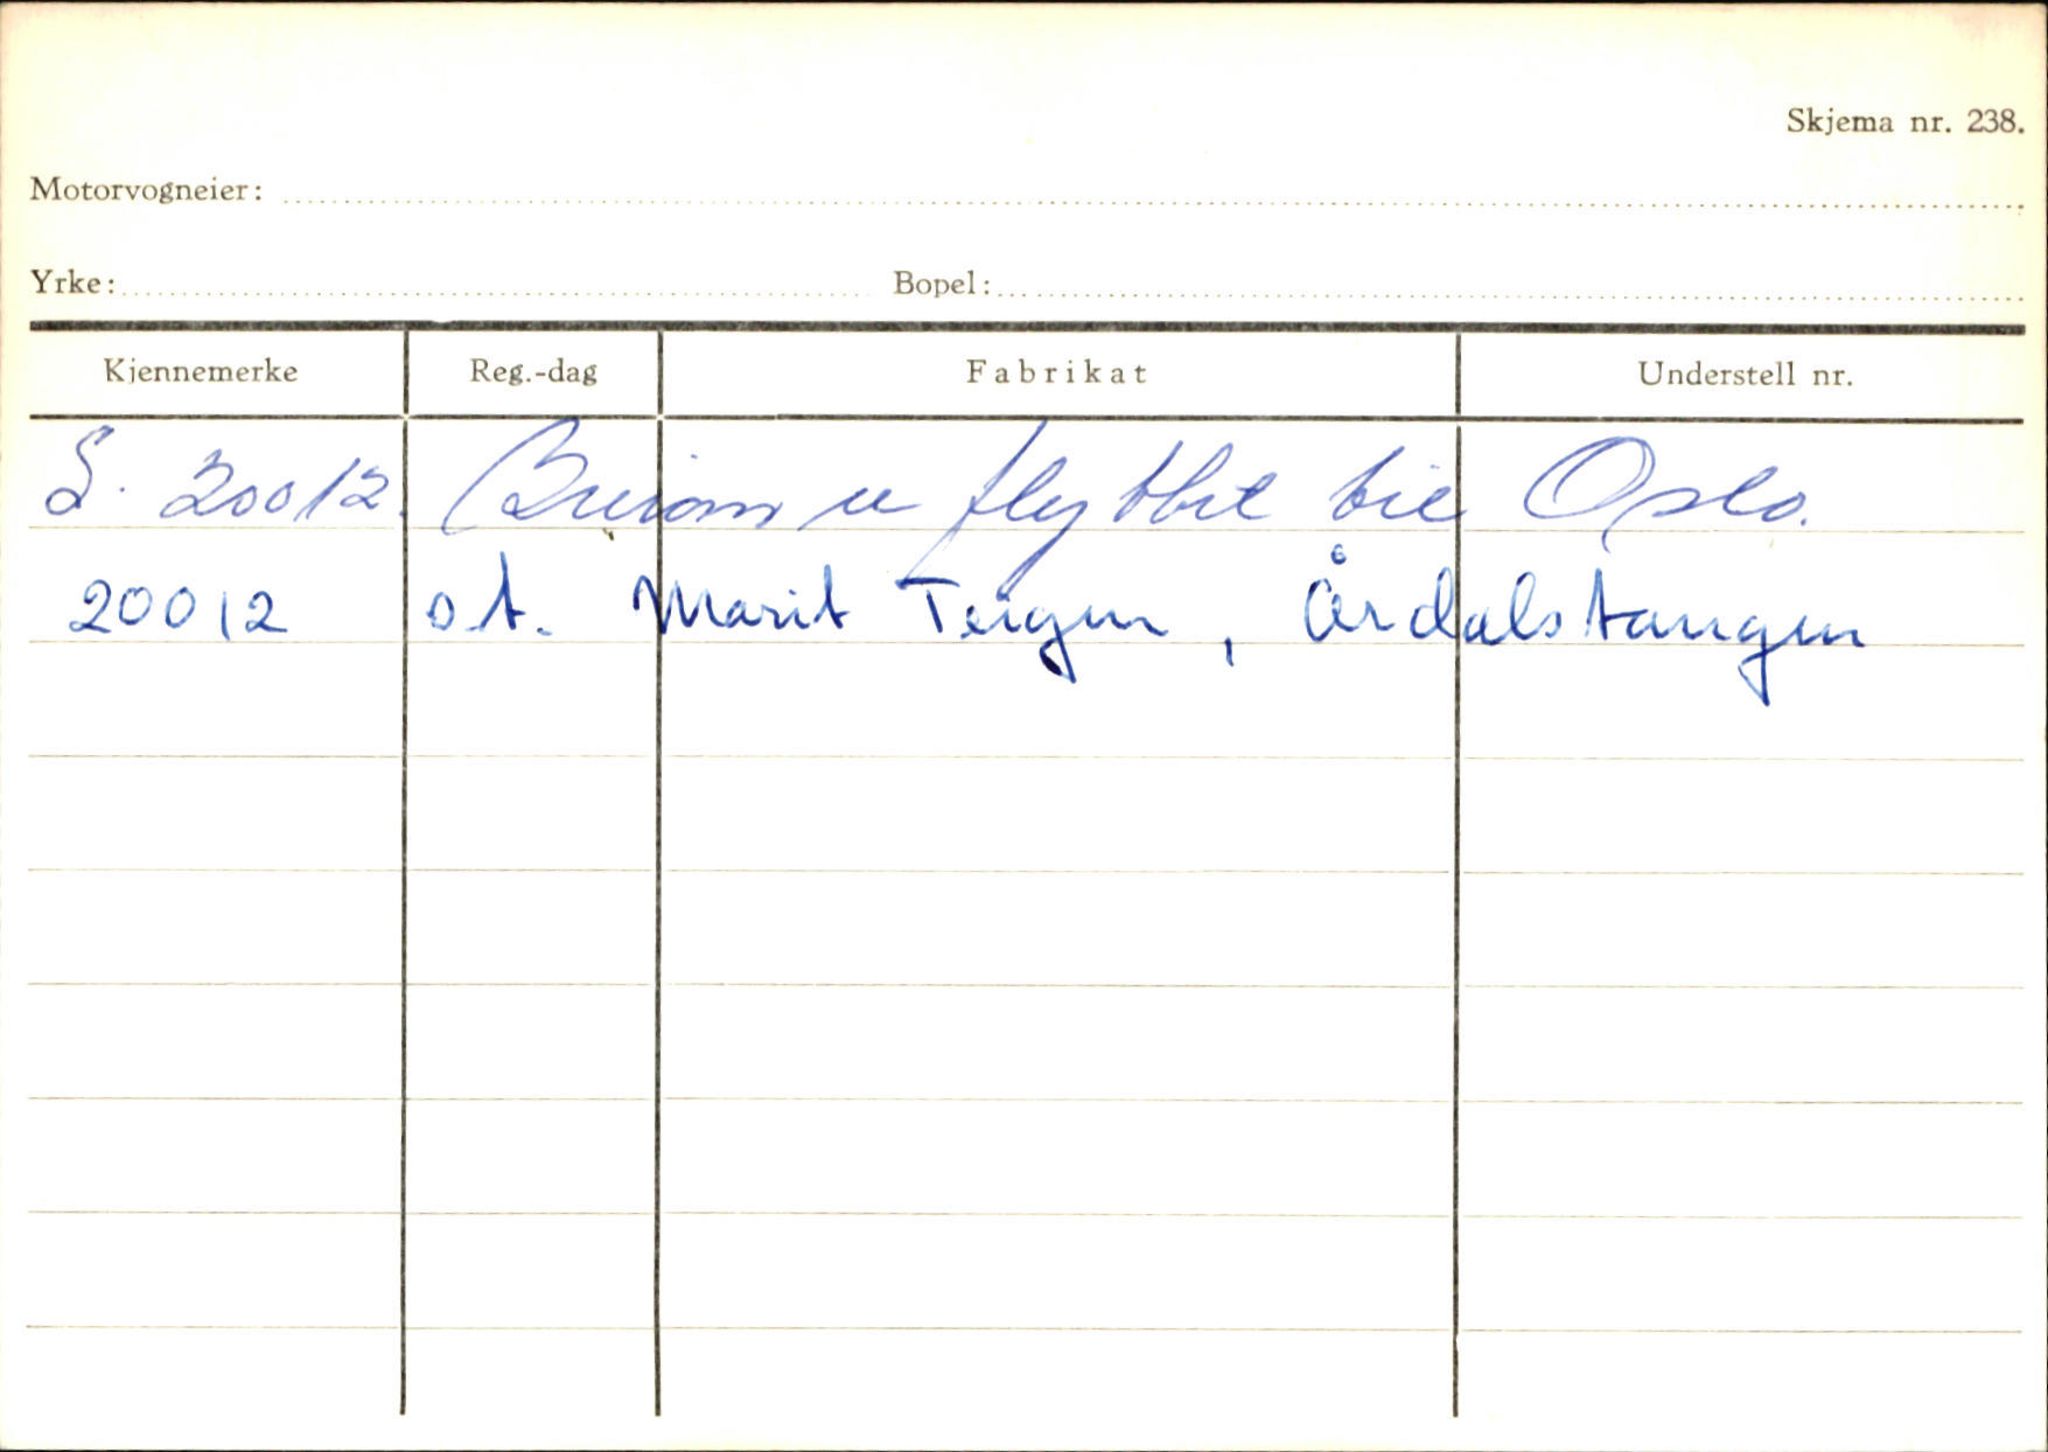 Skjema nr. 238.
Motorvogneier:
Yrke: Bopel:
Kjennemerke Reg.-dag Fabrikat Understell nr.
S. 20012. flyttet til Oslo.
20012 o.t. Marit Teigen, Årdalstangen